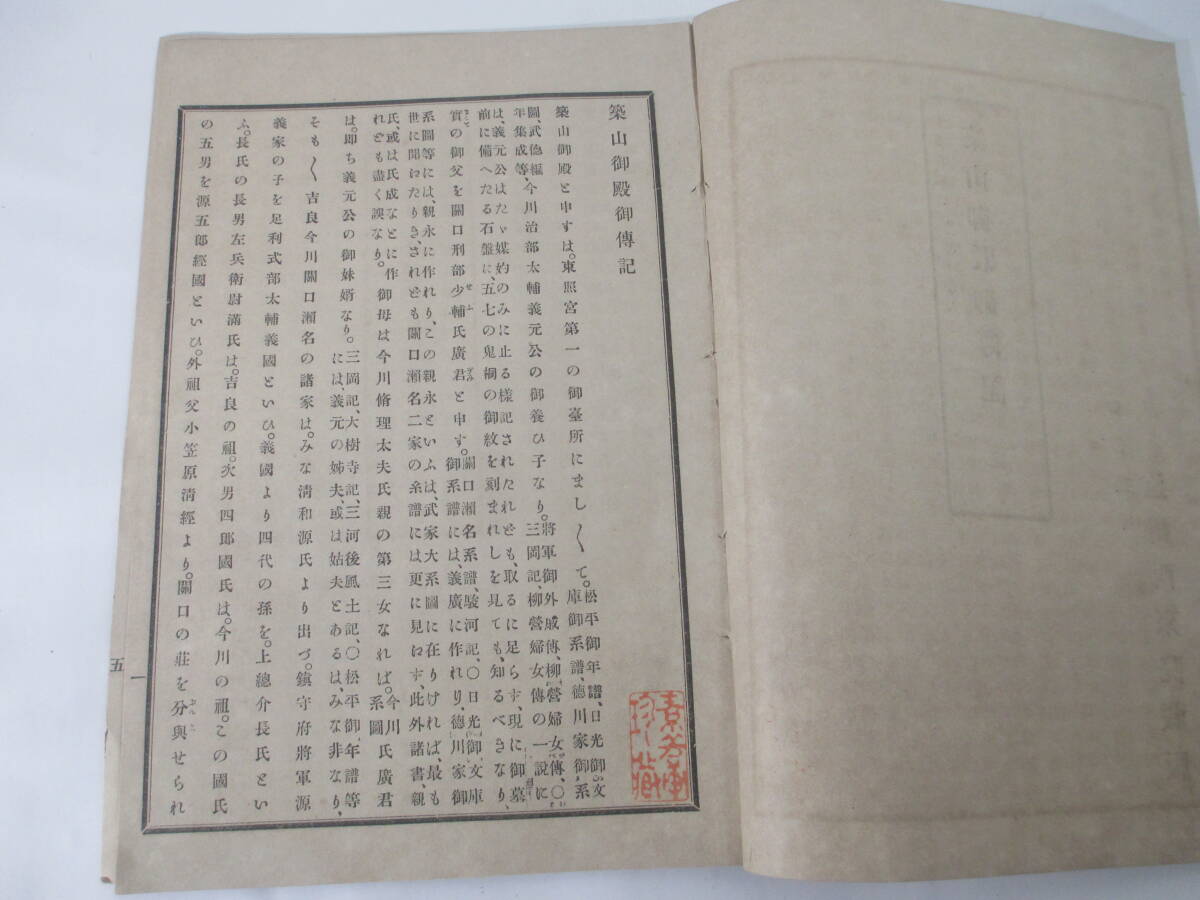 築山御殿御傳記
築山御殿と申すは。東照宮第一の御臺所にまし〳〵て。松平御年譜、日光御文
庫御系譜、德川家御系
圖、武德編
年集成等、今川治部太輔義元公の御養ひ子なり。將軍御外戚傳、柳營婦女傳、〇
三岡記、柳營婦女傳の一說に
は、義元公はたゞ媒妁のみに止る樣記されたれども、取るに足らす、現に御墓
前に備へたる石盤に、五七の鬼桐の御紋を刻まれしを見ても、知るべきなり、
實の御父を關口刑部少輔氏廣君と申す。關口瀨名系譜、駿河記、〇日光御文庫
御系譜には、義廣に作れり、德川家御
系圖等には、親永に作れり、この親永といふは、武家大系圖に在りければ、最も
世に聞ねたりき、されども關口瀨名二家の系譜には更に見ねす、此外諸書、親
氏、或は氏成などに作
れども盡く誤なり。御母は今川脩理太夫氏親の第三女なれば。今川
系圖氏廣君
は。卽ち義元公の御妹婿なり。三岡記、大樹寺記、三河後風土記、〇松平御年譜等
には、義元の姊夫、或は姑夫とあるは、みな非なり、
そも〳〵吉良今川關口瀨名の諸家は。みな淸和源氏より出づ。鎭守府將軍源
義家の子を足利式部太輔義國といひ。義國より四代の孫を。上總介長氏とい
ふ。長氏の長男左兵衞尉滿氏は。吉良の祖。次男四郎國氏は。今川の祖。この國氏
の五男を源五郎經國といひ。外祖父小笠原淸經より。關口の莊を分與せられ
一
五